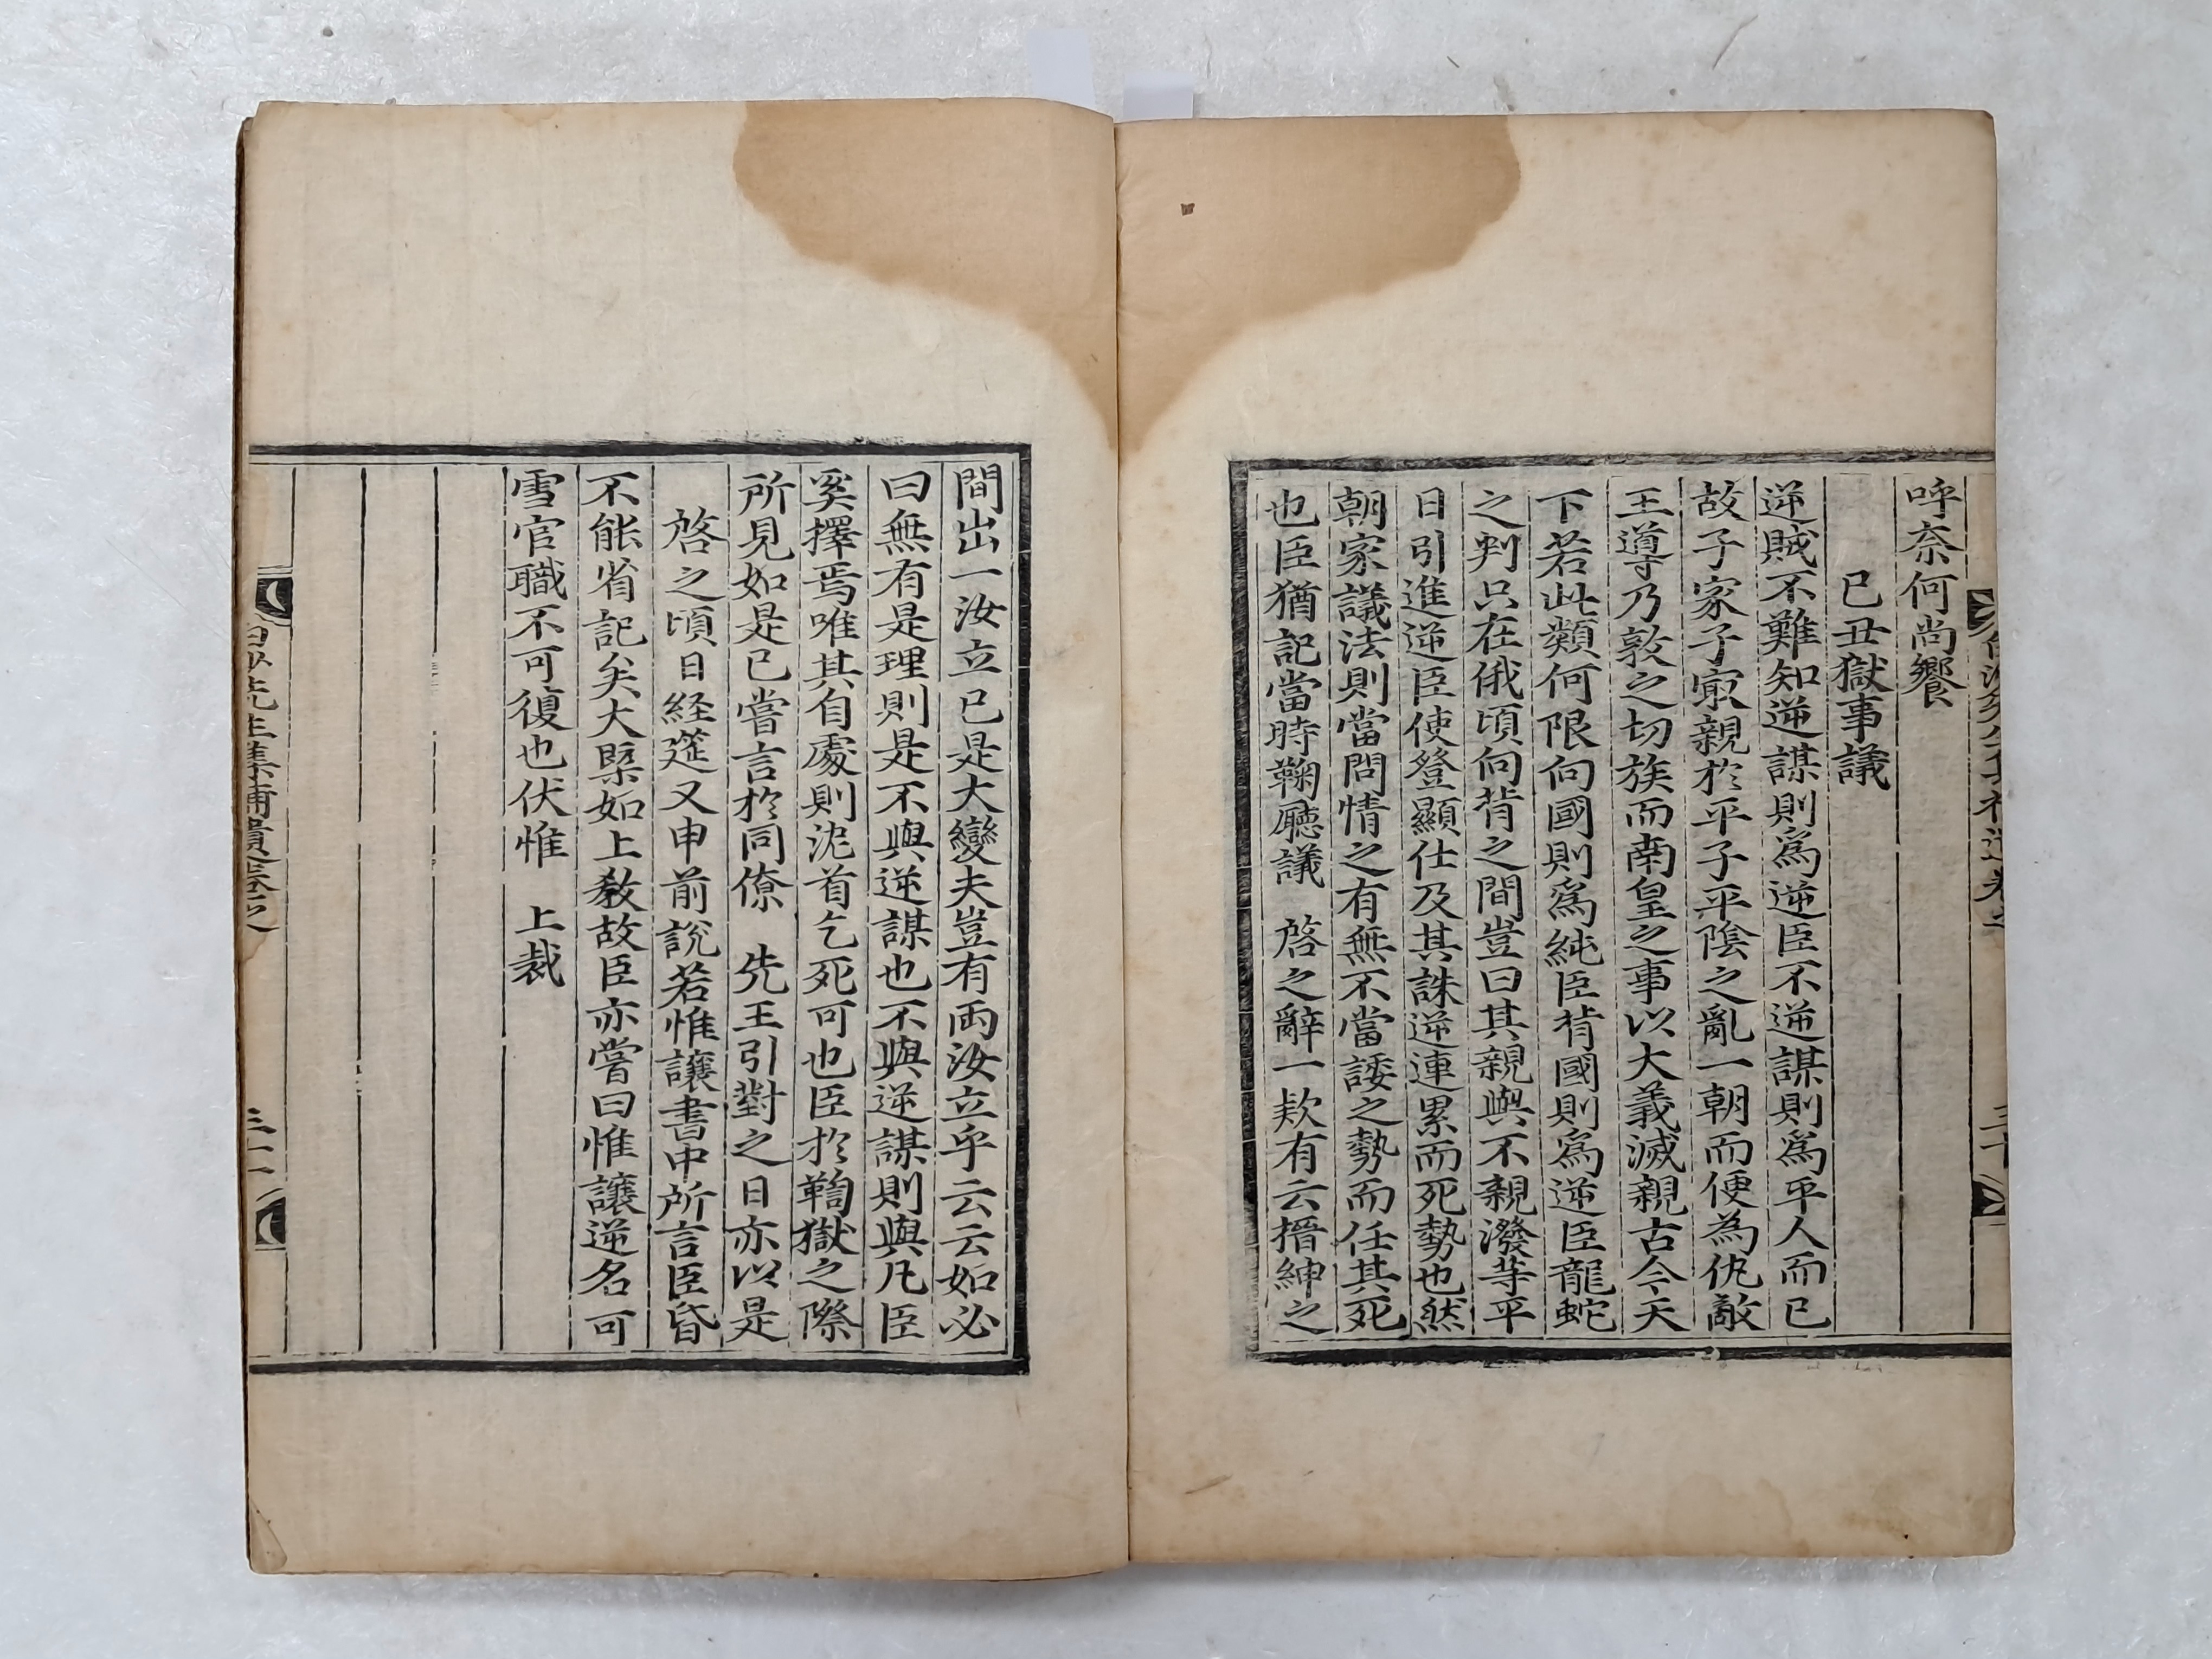 呼奈何尚饗
己丑獄事議
逆賊不難知逆謀則爲逆臣不逆謀則爲平人而已
故子家子㝡親於平子平陰之亂一朝而便為仇敵
王導乃敦之切族而南皇之事以大義滅親古今天
下若此類何限向國則爲純臣背國則爲逆臣龍蛇
之判只在俄頃向背之間豈曰其親與不親潑等平
日引進逆臣使登顯仕及其誅逆連累而死勢也然
朝家議法則當問情之有無不當諉之勢而任其死
也臣猶記當時鞠廳議 啓之辭一款有云搢紳之
間出一汝立已是大變夫豈有兩汝立乎云云如必
曰無有是理則是不與逆謀也不與逆謀則與凡臣
奚擇焉唯其自處則泥首乞死可也臣於鞫獄之際
所見如是已嘗言於同僚 先王引對之日亦以是
啓之頃日經筵又申前說若惟讓書中所言臣昏
不能省記矣大槩如上教故臣亦嘗曰惟讓逆名可
雪官職不可復也伏惟 上裁
先生集補遺卷之
三十一